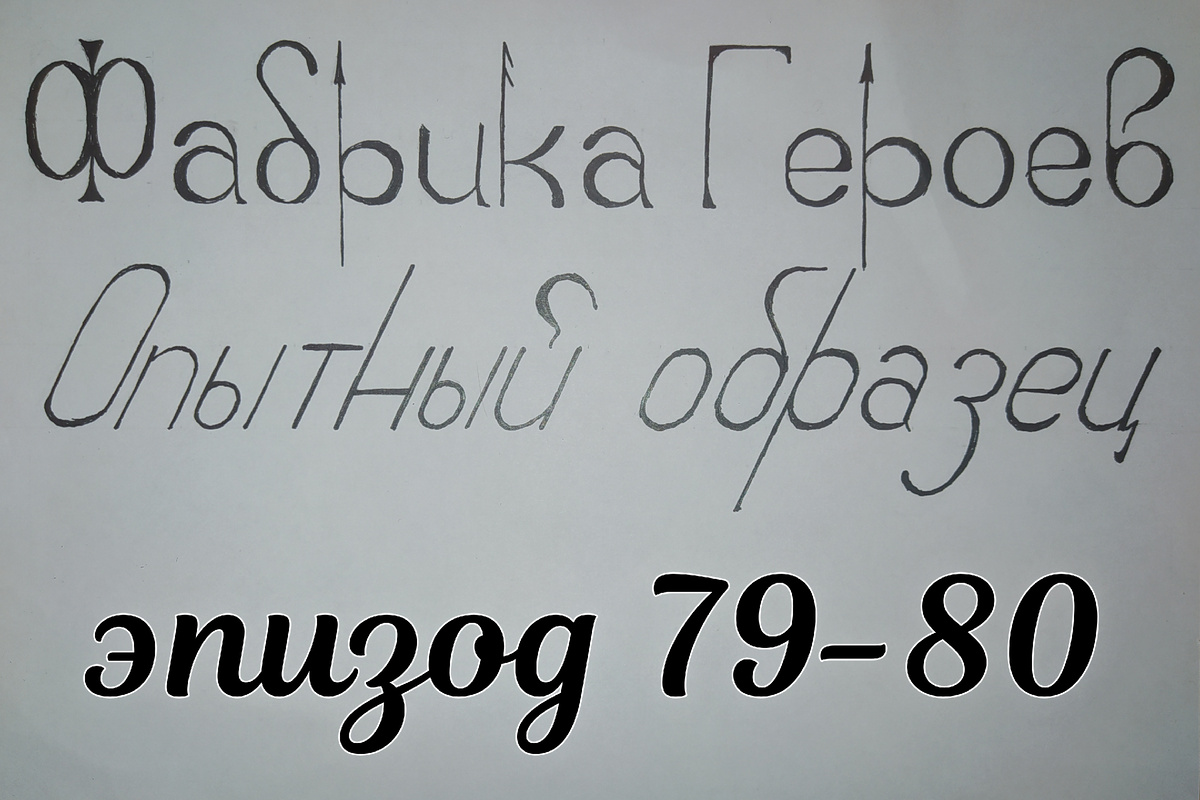 Фабрика Героев
Опытный образец
эпизод 79-80